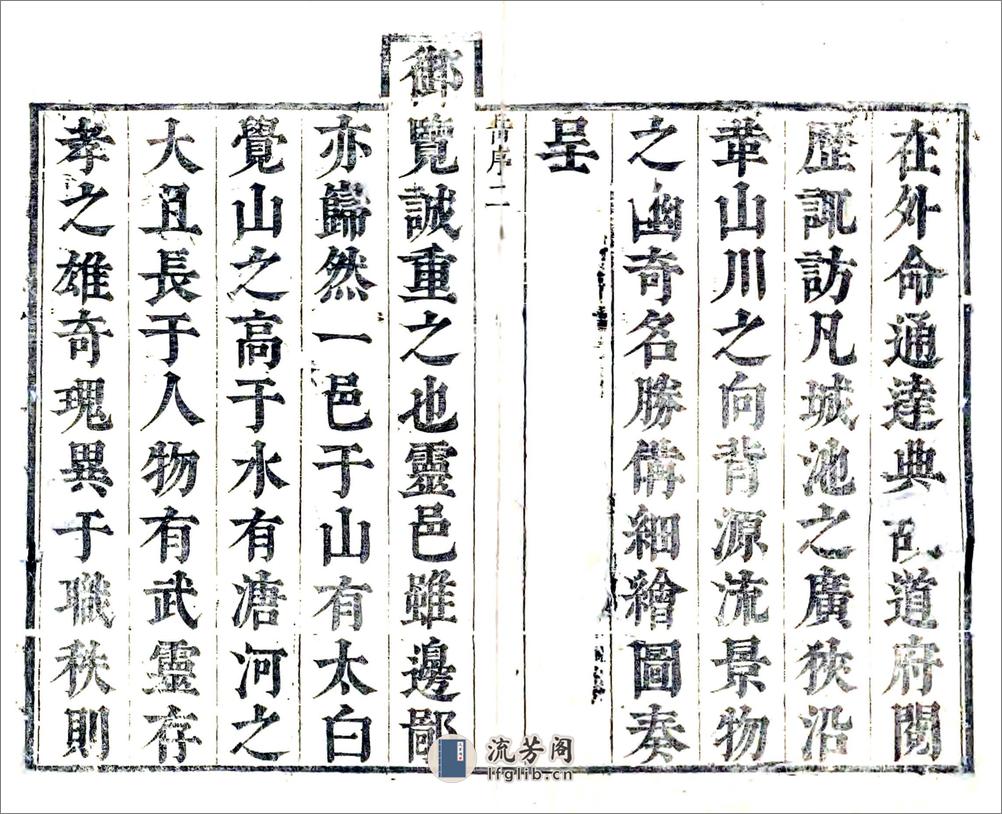 在外命通達典 道府閱
歷諏訪凡城池之廣狹沿
革山川之向背源流景物
之幽奇名勝備細繪圖奏
呈
序二
御覽誠重之也靈邑雖邊鄙
亦巋然一邑于山有太白
覺山之高于水有溏河之
大且長于人物有武靈存
孝之雄奇瑰異于職秩則
流芳阁
lfglib.cn